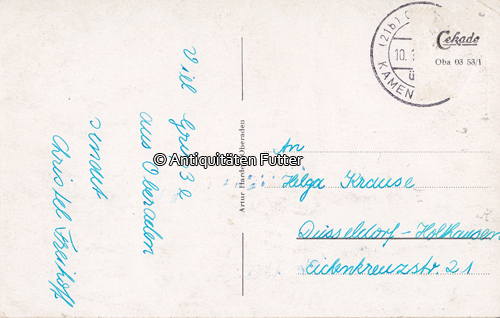 Viel Grüße
aus Oberaden
sendet
Christel Freihoff
Artur Harder Oberaden
(21b)
10.1
KAMEN
ü
Cekade
Oba 03 53/1
An
Helga Krause
Düsseldorf-Holthausen
Eichenkreuzstr. 21
© Antiquitäten Futter